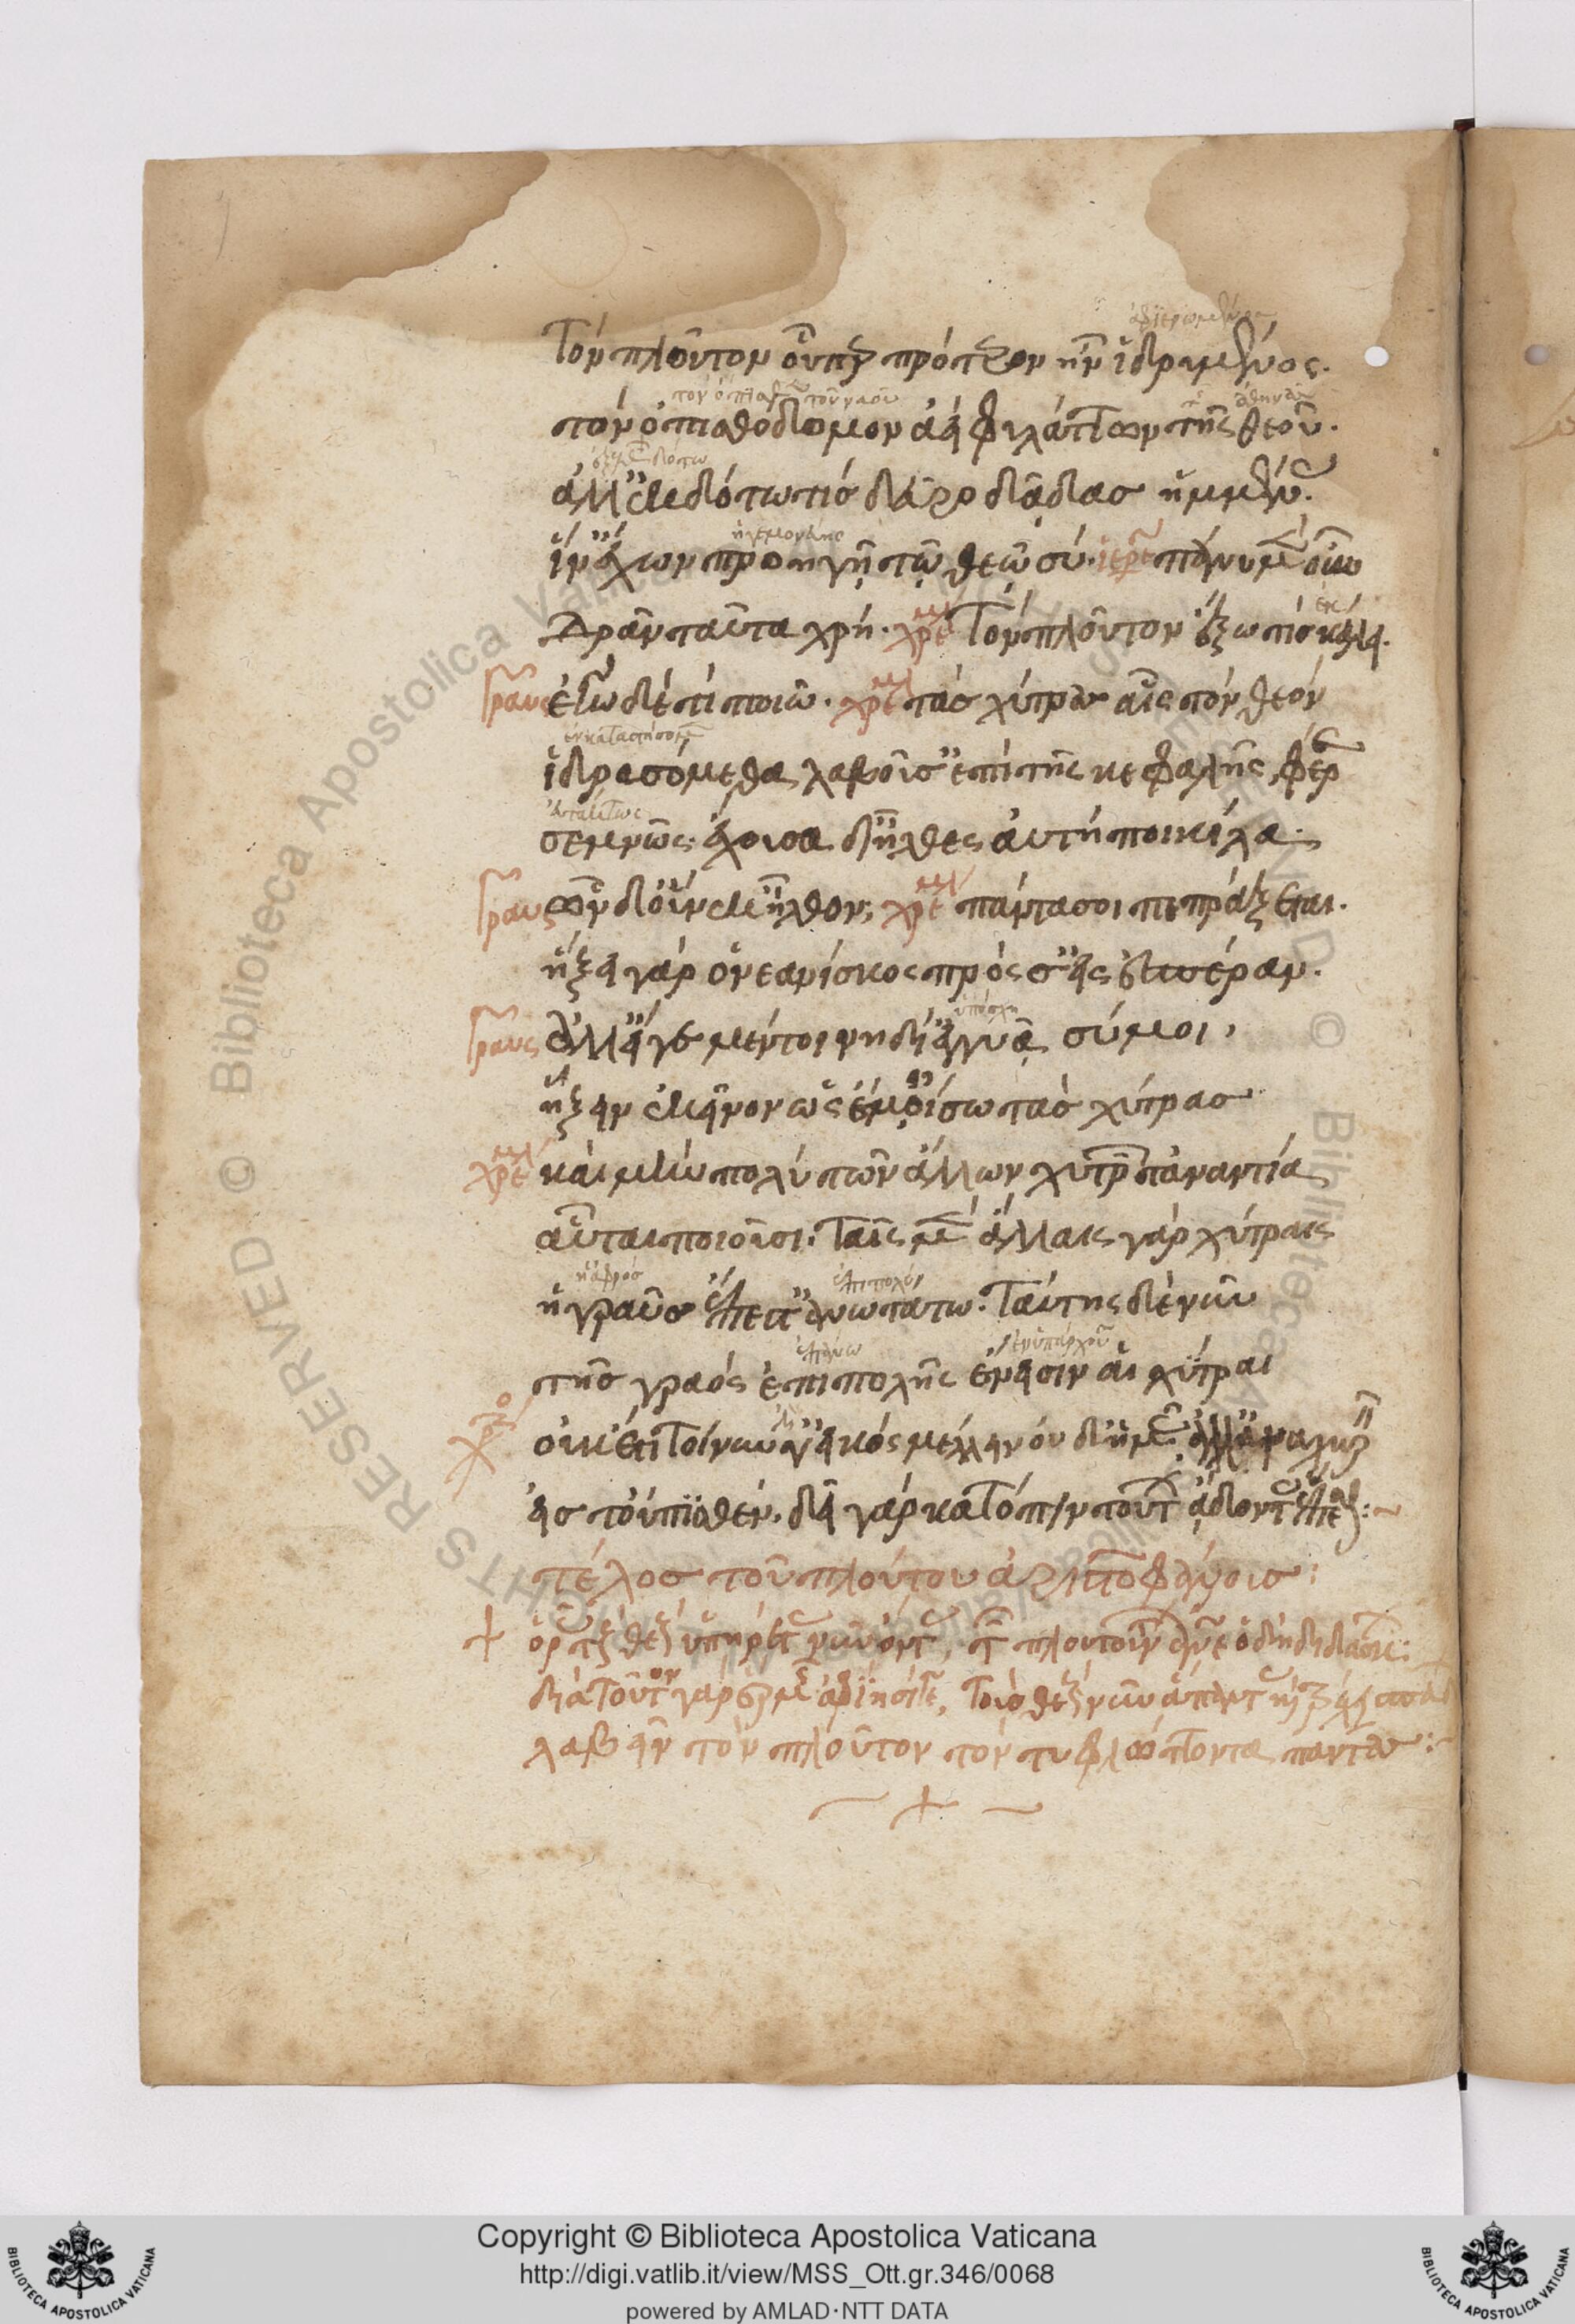 Τὸν πλοῦτον οὗπερ πρότερον ἦν ἱδρυμένος.
τὸν ὀπισθόδομον ἀεὶ φυλάττων τῆς θεοῦ.
ἀλλ' ἐκδότω τις δεῦρο δᾷδας ἡμμένας.
ἵν' ἔχων προηγῇ τῷ θεῷ σύ. ἱερε πάνυ μὲν οὖν
Δρᾶν ταῦτα χρή. χρε Τὸν πλοῦτον ἔξω τίς κάλει.
γραῦς ἐγὼ δὲ τί ποιῶ. χρε τὰς χύτρας αἷς τὸν θεὸν
ἱδρυσόμεθα λαβοῦσ' ἐπὶ τῆς κεφαλῆς φέρε
σεμνῶς. ἔχουσα δ' ἦλθες αὐτὴ ποικίλα.
γραυς ὧν δ' οὕνεκ' ἦλθον; χρε πάντα σοι πεπράξεται.
ἥξει γὰρ ὁ νεανίσκος πρός σ' εἰς ἑσπέραν.
γραυς ἀλλ' εἴγε μέντοι νὴ δί' ἐγγυᾷ σύ μοι,
ἥξειν ἐκεῖνον ὡς ἐμ' οἴσω τὰς χύτρας
χρε καὶ μὴν πολὺ τῶν ἄλλων χυτρῶν τἀναντία
αὗται ποιοῦσι. Ταῖς μὲν ἄλλαις γὰρ χύτραις
ἡ γραῦς ἔπεστ' ἀνωτάτω. Ταύτης δὲ νῦν
τῆς γραὸς ἐπιπολῆς ἔνεισιν αἱ χύτραι
χορο οὐκ ἔτι Τοίνυν γ' εἰκὸς μέλλειν οὐδ' ἡμᾶς. ἀλλ' ἀναχωρεῖν
εἰς τοὔπισθεν. δεῖ γὰρ κατόπιν τούτων ᾄδοντας ἕπεσθαι:~
τέλος τοῦ πλούτου ἀριστοφάνους:
λαβεῖν τὸν πλοῦτον τὸν τυφλώττοντα πάντας:~
Copyright © Biblioteca Apostolica Vaticana
http://digi.vatlib.it/view/MSS_Ott.gr.346/0068
powered by AMLAD·NTT DATA
BIBLIOTECA APOSTOLICA VATICANA
BIBLIOTECA APOSTOLICA VATICANA